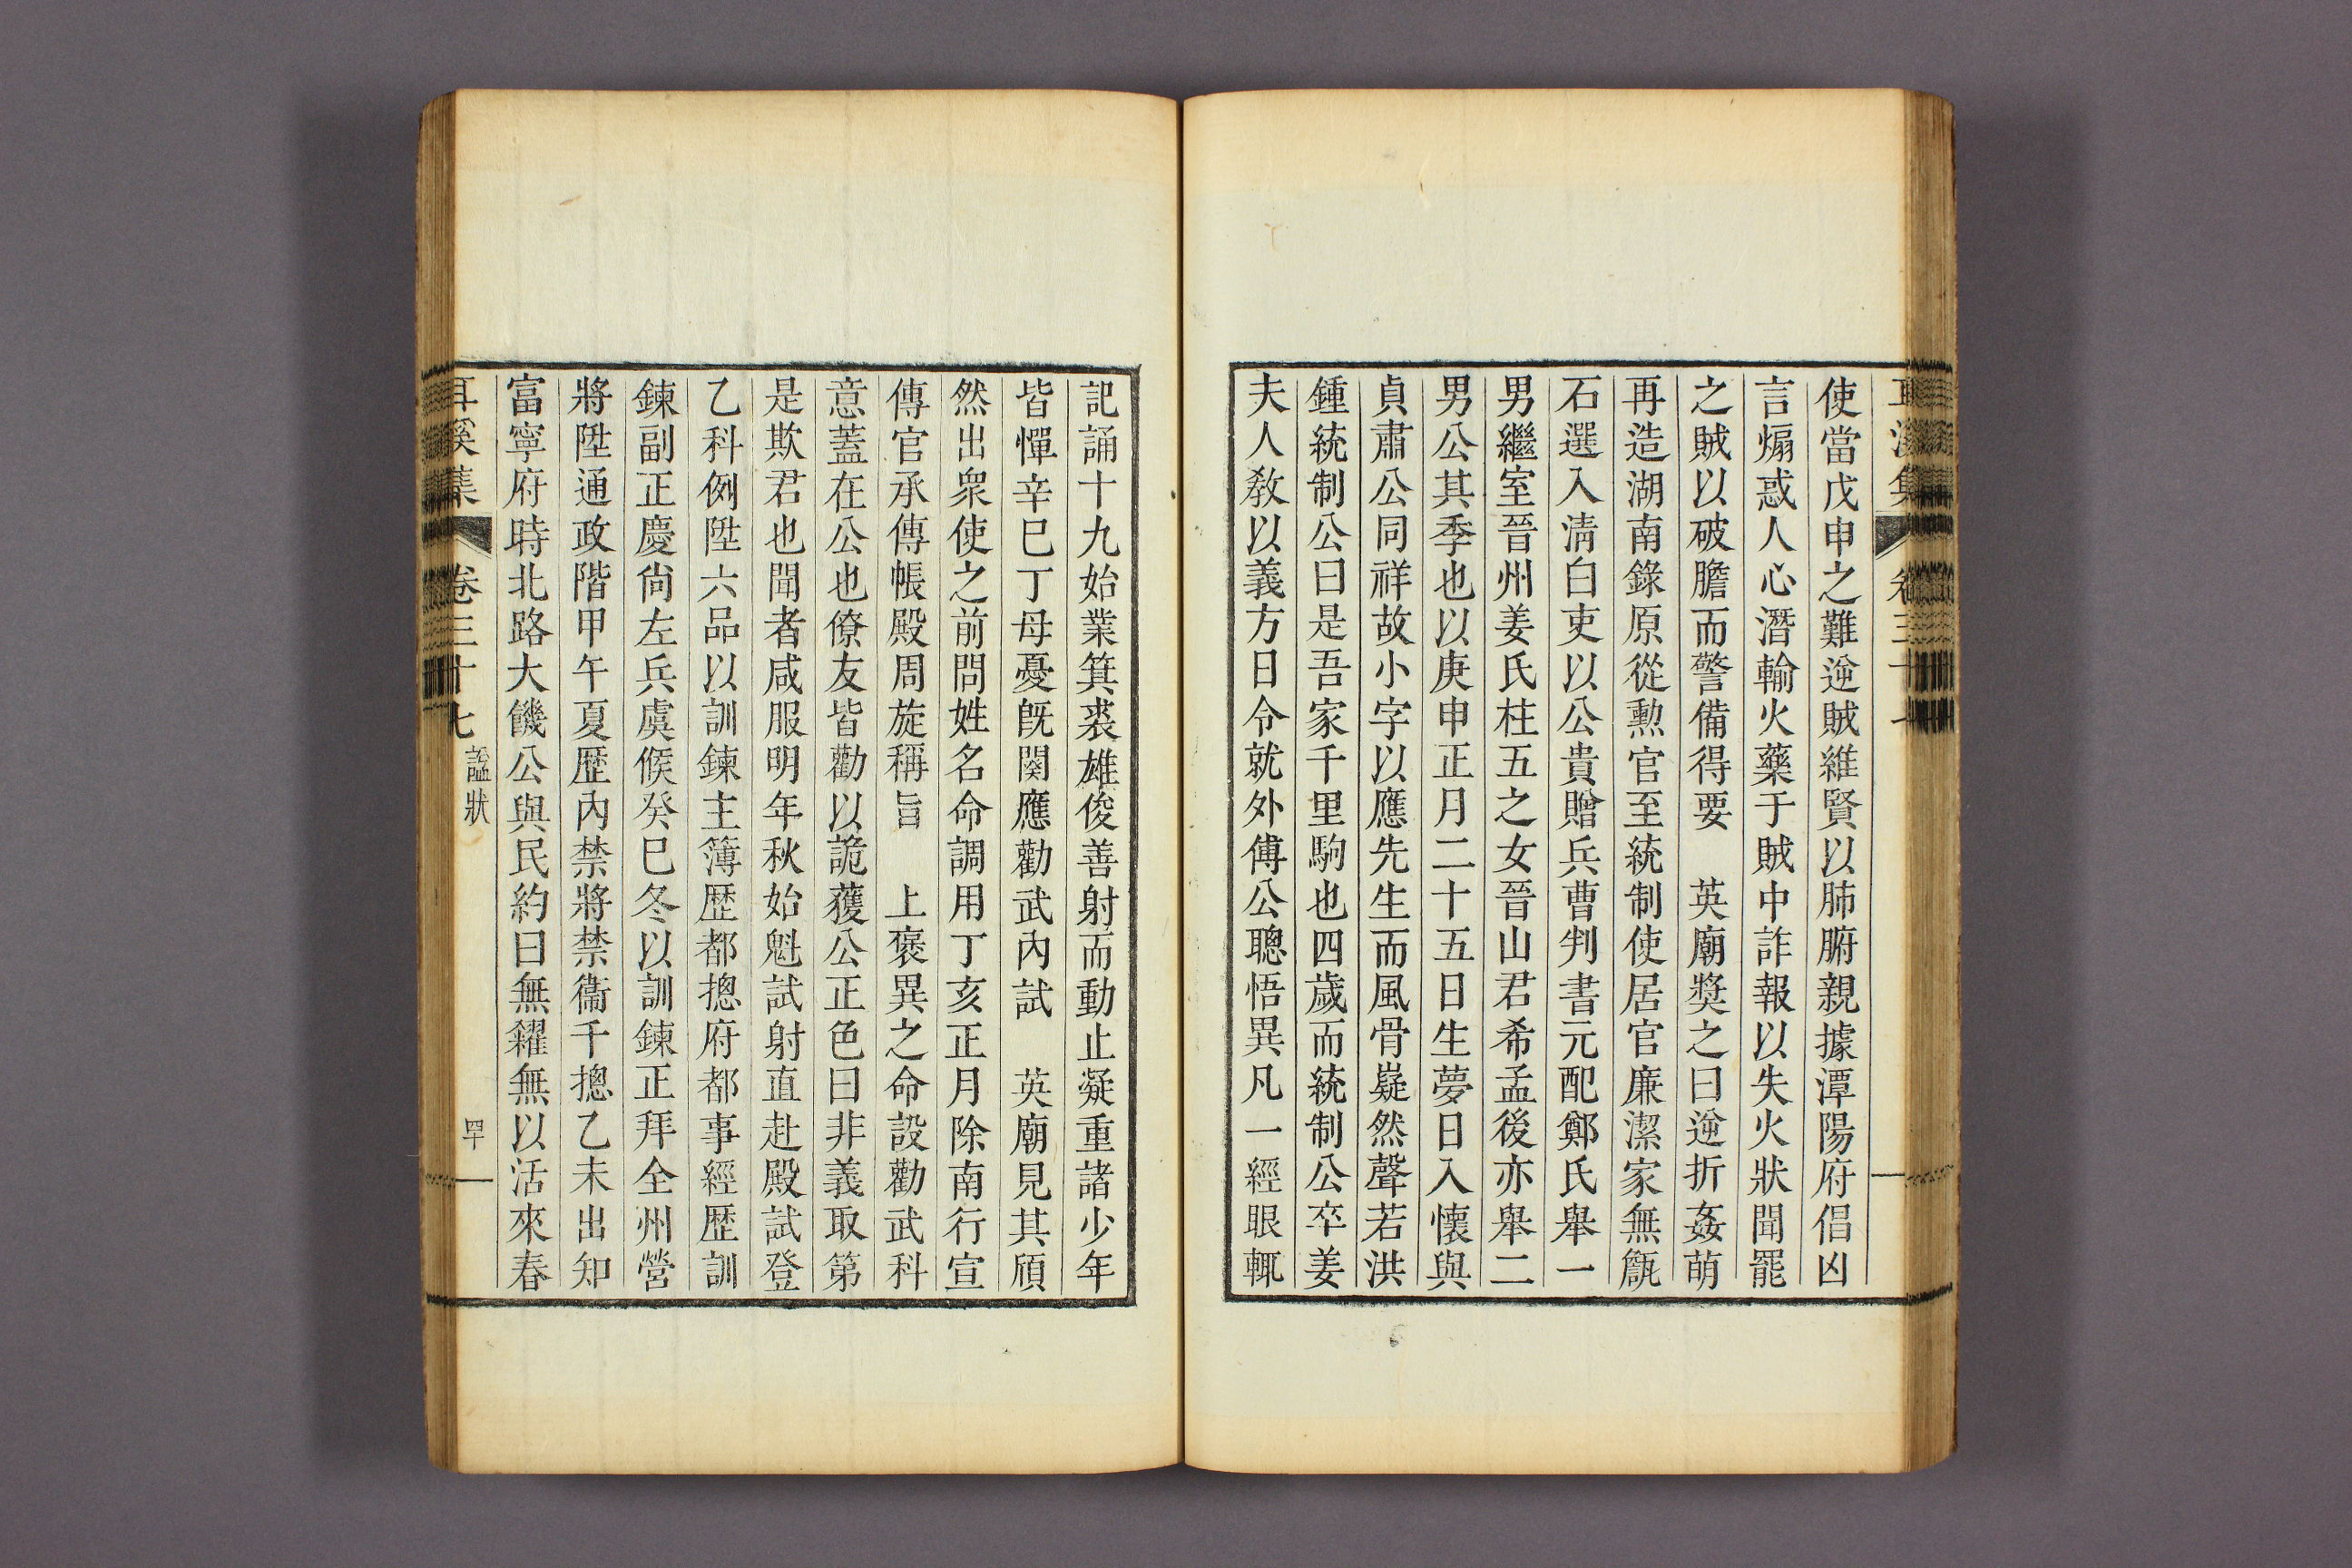 使當戊申之難逆賊維賢以肺腑親據潭陽府倡凶
言煽惑人心潛輸火藥于賊中詐報以失火狀聞罷
之賊以破膽而警備得要　英廟奬之曰逆折姦萌
再造湖南錄原從勲官至統制使居官廉潔家無甔
石選入淸白吏以公貴贈兵曹判書元配鄭氏舉一
男繼室晉州姜氏柱五之女晉山君希孟後亦舉二
男公其季也以庚申正月二十五日生夢日入懷與
貞肅公同祥故小字以應先生而風骨嶷然聲若洪
鍾統制公曰是吾家千里駒也四歲而統制公卒姜
夫人敎以義方日令就外傅公聰悟異凡一經眼輒
記誦十九始業箕裘雄俊善射而動止凝重諸少年
皆憚辛巳丁母憂旣闋應勸武內試　英廟見其頎
然出衆使之前問姓名命調用丁亥正月除南行宣
傳官承傳帳殿周旋稱旨　上褒異之命設勸武科
意蓋在公也僚友皆勸以詭獲公正色曰非義取第
是欺君也聞者咸服明年秋始魁試射直赴殿試登
乙科例陞六品以訓鍊主簿歷都摠府都事經歷訓
鍊副正慶尙左兵虞候癸巳冬以訓鍊正拜全州營
將陞通政階甲午夏歷內禁將禁衞千摠乙未出知
富寧府時北路大饑公與民約曰無糴無以活來春
耳溪集　卷三十七　謚狀　罕